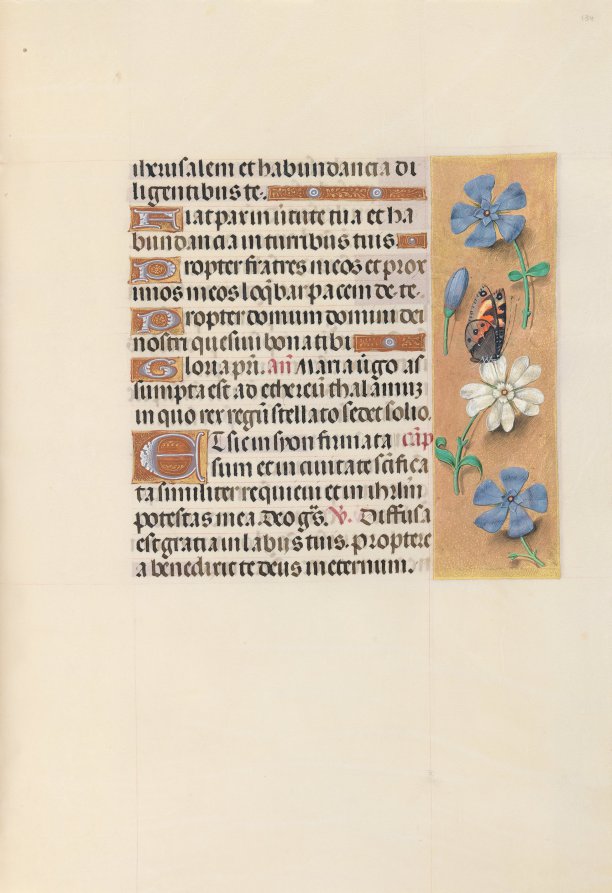 134
iherusalem et habundancia di
ligentibus te.
Fiat pax in uirtute tua et ha
bundancia in turribus tuis.
Propter fratres meos et prox
imos meos loq̄bar pacem de te.
Propter domum domini dei
nostri quesiui bona tibi
Gloria pri. an̄ Maria ūgo as
sumpta est ad ethereū thalamuz
in quo rex regū stellato sedet solio.
Et sic in syon firmata cap̄
sum et in ciuitate scīfica
ta similiter requieui et in ihrlm̄
potestas mea. deo gr̄s. V. Diffusa
est gratia in labijs tuis. propterе
a benedixit te deus in eternum.